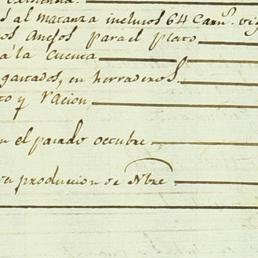 al matanza inclusos 64 Carn.
os Anejos para el plato
a la Cuenta
gastados, en herraderos
to y racion
en el pasado octubre
produccion de Nbre